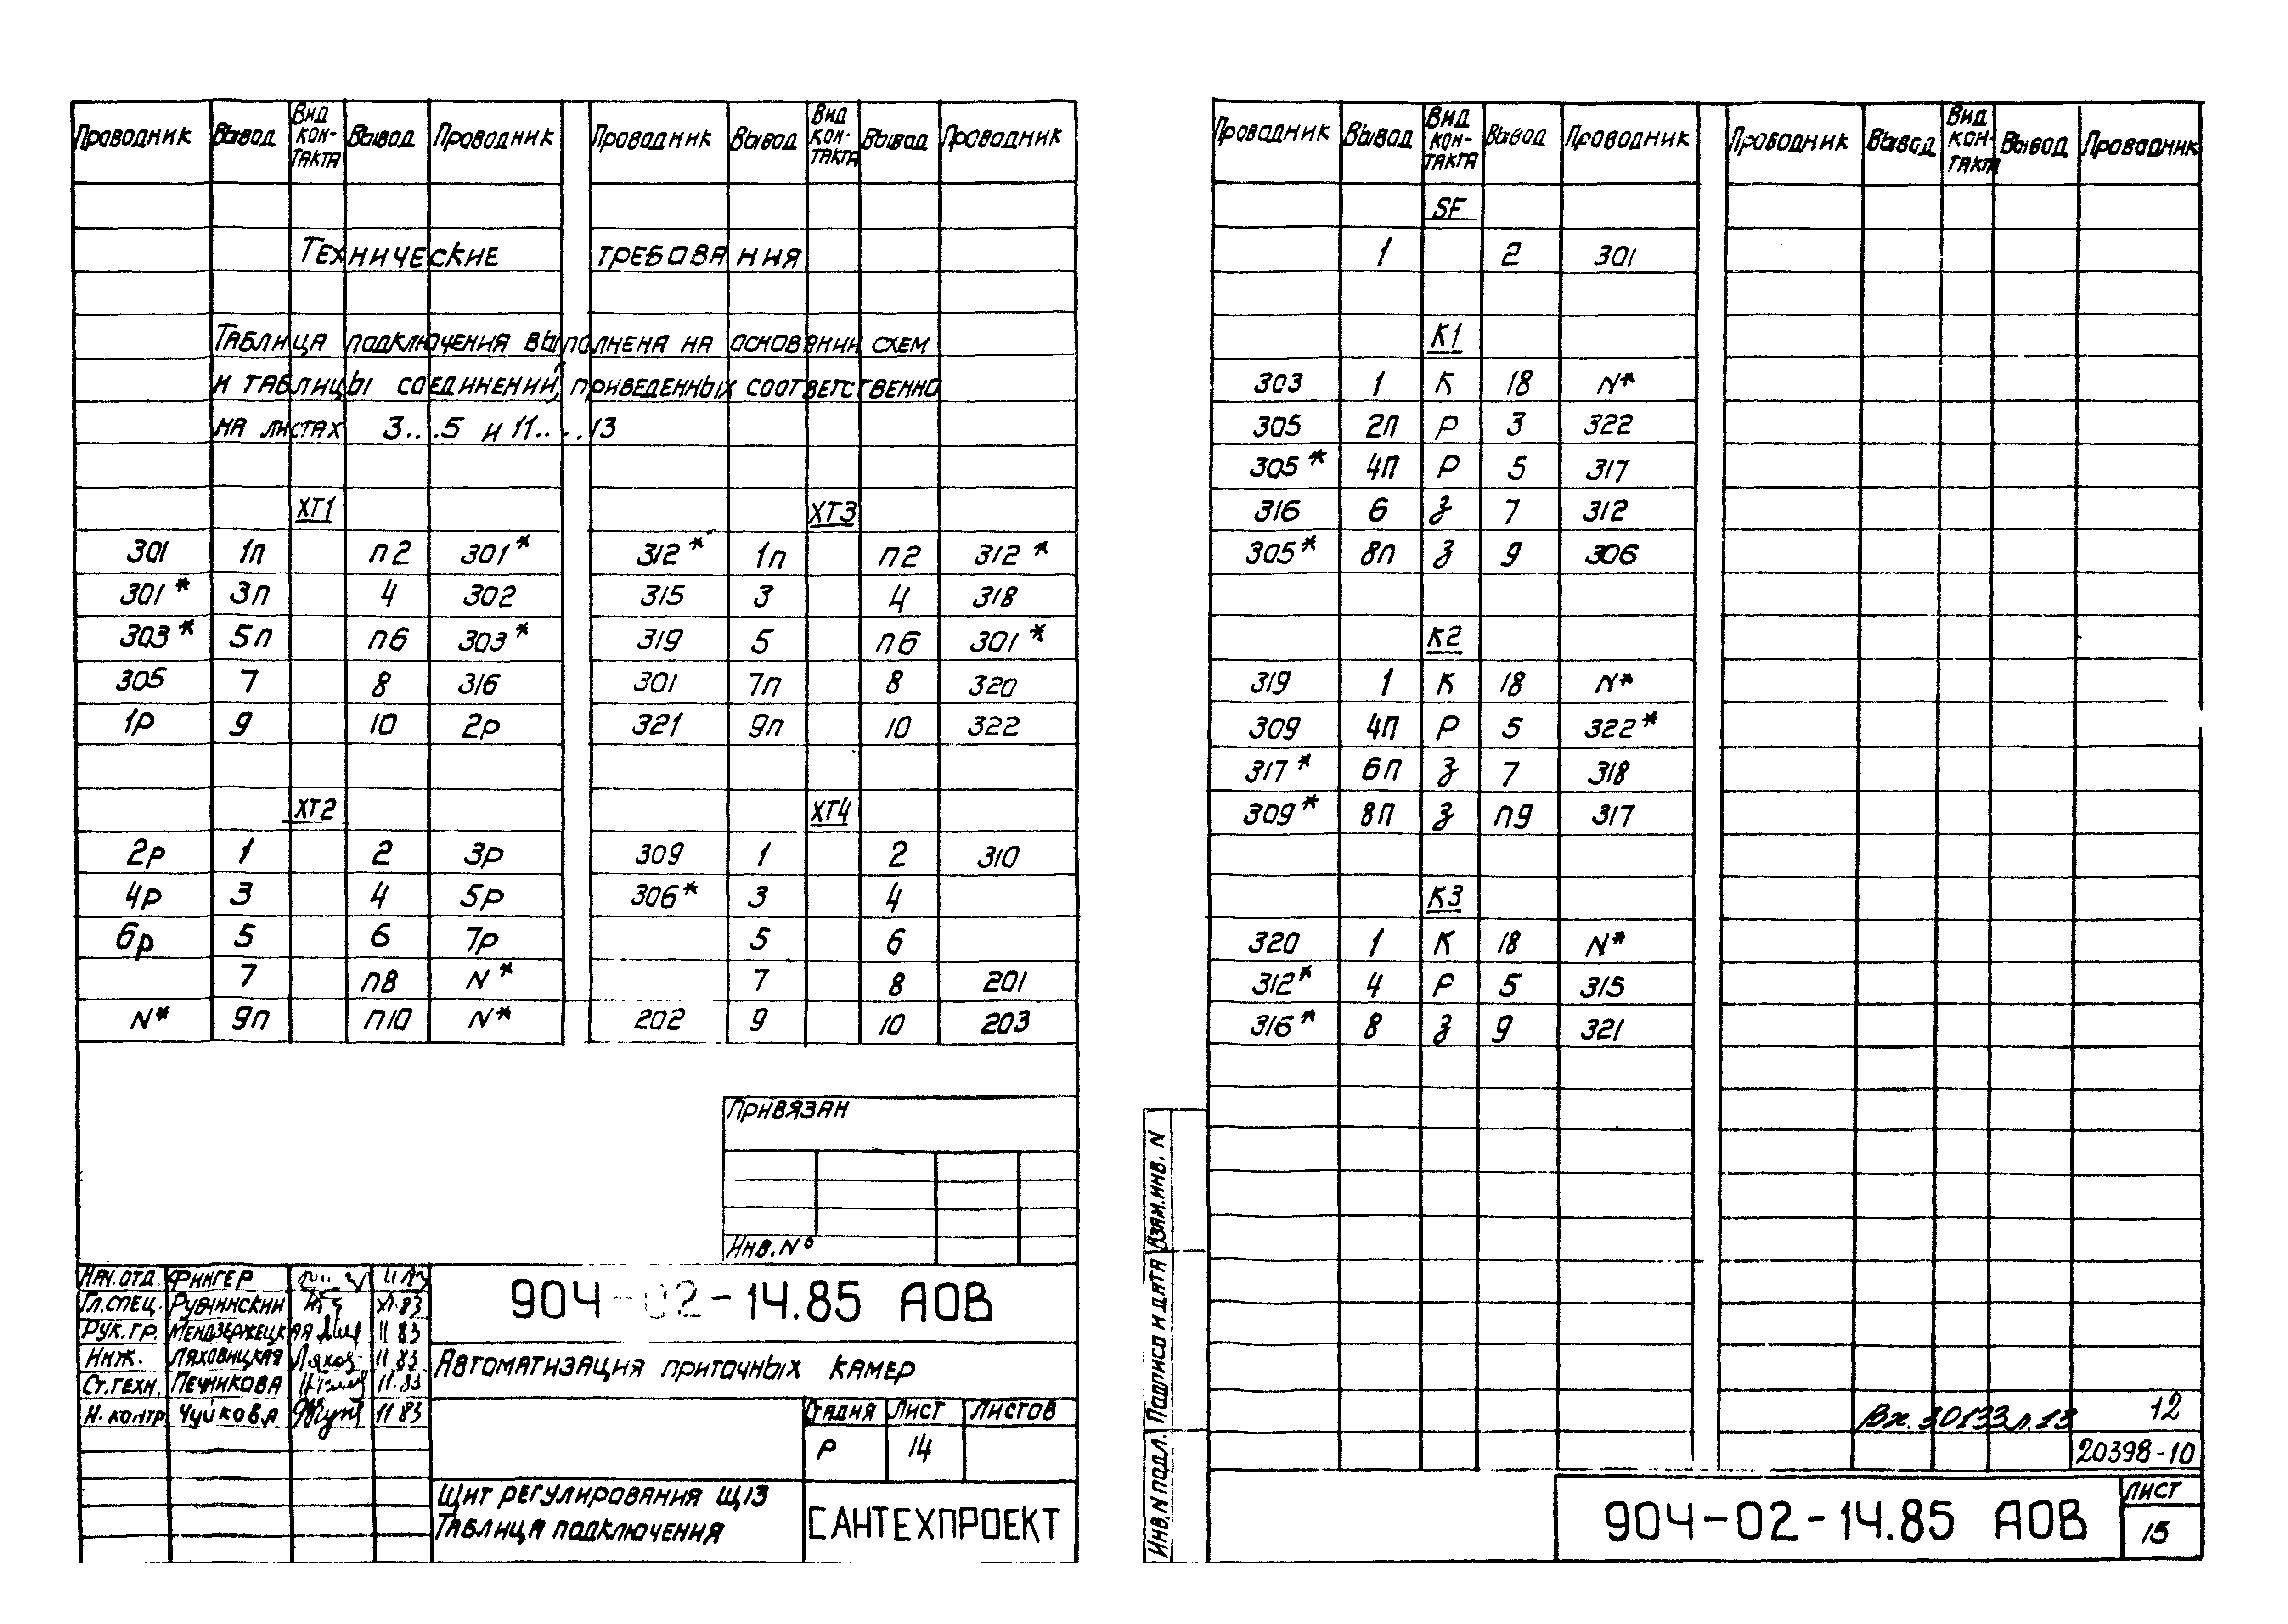 Проводник Вывод Вид контакта Вывод Проводник Проводник Вывод Вид контакта Вывод Проводник
Технические требования
Таблица подключения выполнена на основании схем
и таблицы соединений, приведенных соответственно
на листах 3...5 и 11....13
ХТ1 ХТ3
301 1п п2 301* 312* 1п п2 312*
301* 3п 4 302 315 3 4 318
303* 5п п6 303* 319 5 п6 301*
305 7 8 316 301 7п 8 320
1р 9 10 2р 321 9п 10 322
ХТ2 ХТ4
2р 1 2 3р 309 1 2 310
4р 3 4 5р 306* 3 4
6р 5 6 7р 5 6
7 п8 N* 7 8 201
N* 9п п10 N* 202 9 10 203
Привязан
Инв. №
Нач. отд. Фингер
Гл. спец. Рубчинский XI.83
Рук. гр. Мендзержецкая 11 83
Инж. Ляховицкая Ляхов 11 83
Ст. техн. Печникова 11.83
Н. контр Чуйкова 11 83
904-02-14.85 АОВ
Автоматизация приточных камер
Стадия Лист Листов
Р 14
Щит регулирования Щ13
Таблица подключения
САНТЕХПРОЕКТ
Проводник Вывод Вид контакта Вывод Проводник Проводник Вывод Вид контакта Вывод Проводник
SF
1 2 301
К1
303 1 К 18 N*
305 2П Р 3 322
305* 4П Р 5 317
316 6 З 7 312
305* 8п З 9 306
К2
319 1 К 18 N*
309 4П Р 5 322*
317* 6П З 7 318
309* 8П З п9 317
К3
320 1 К 18 N*
312* 4 Р 5 315
316* 8 З 9 321
Инв. N подл. Подпись и дата Взам. инв. N
Вх. 30133 л. 13 12
20398-10
904-02-14.85 АОВ
Лист
15